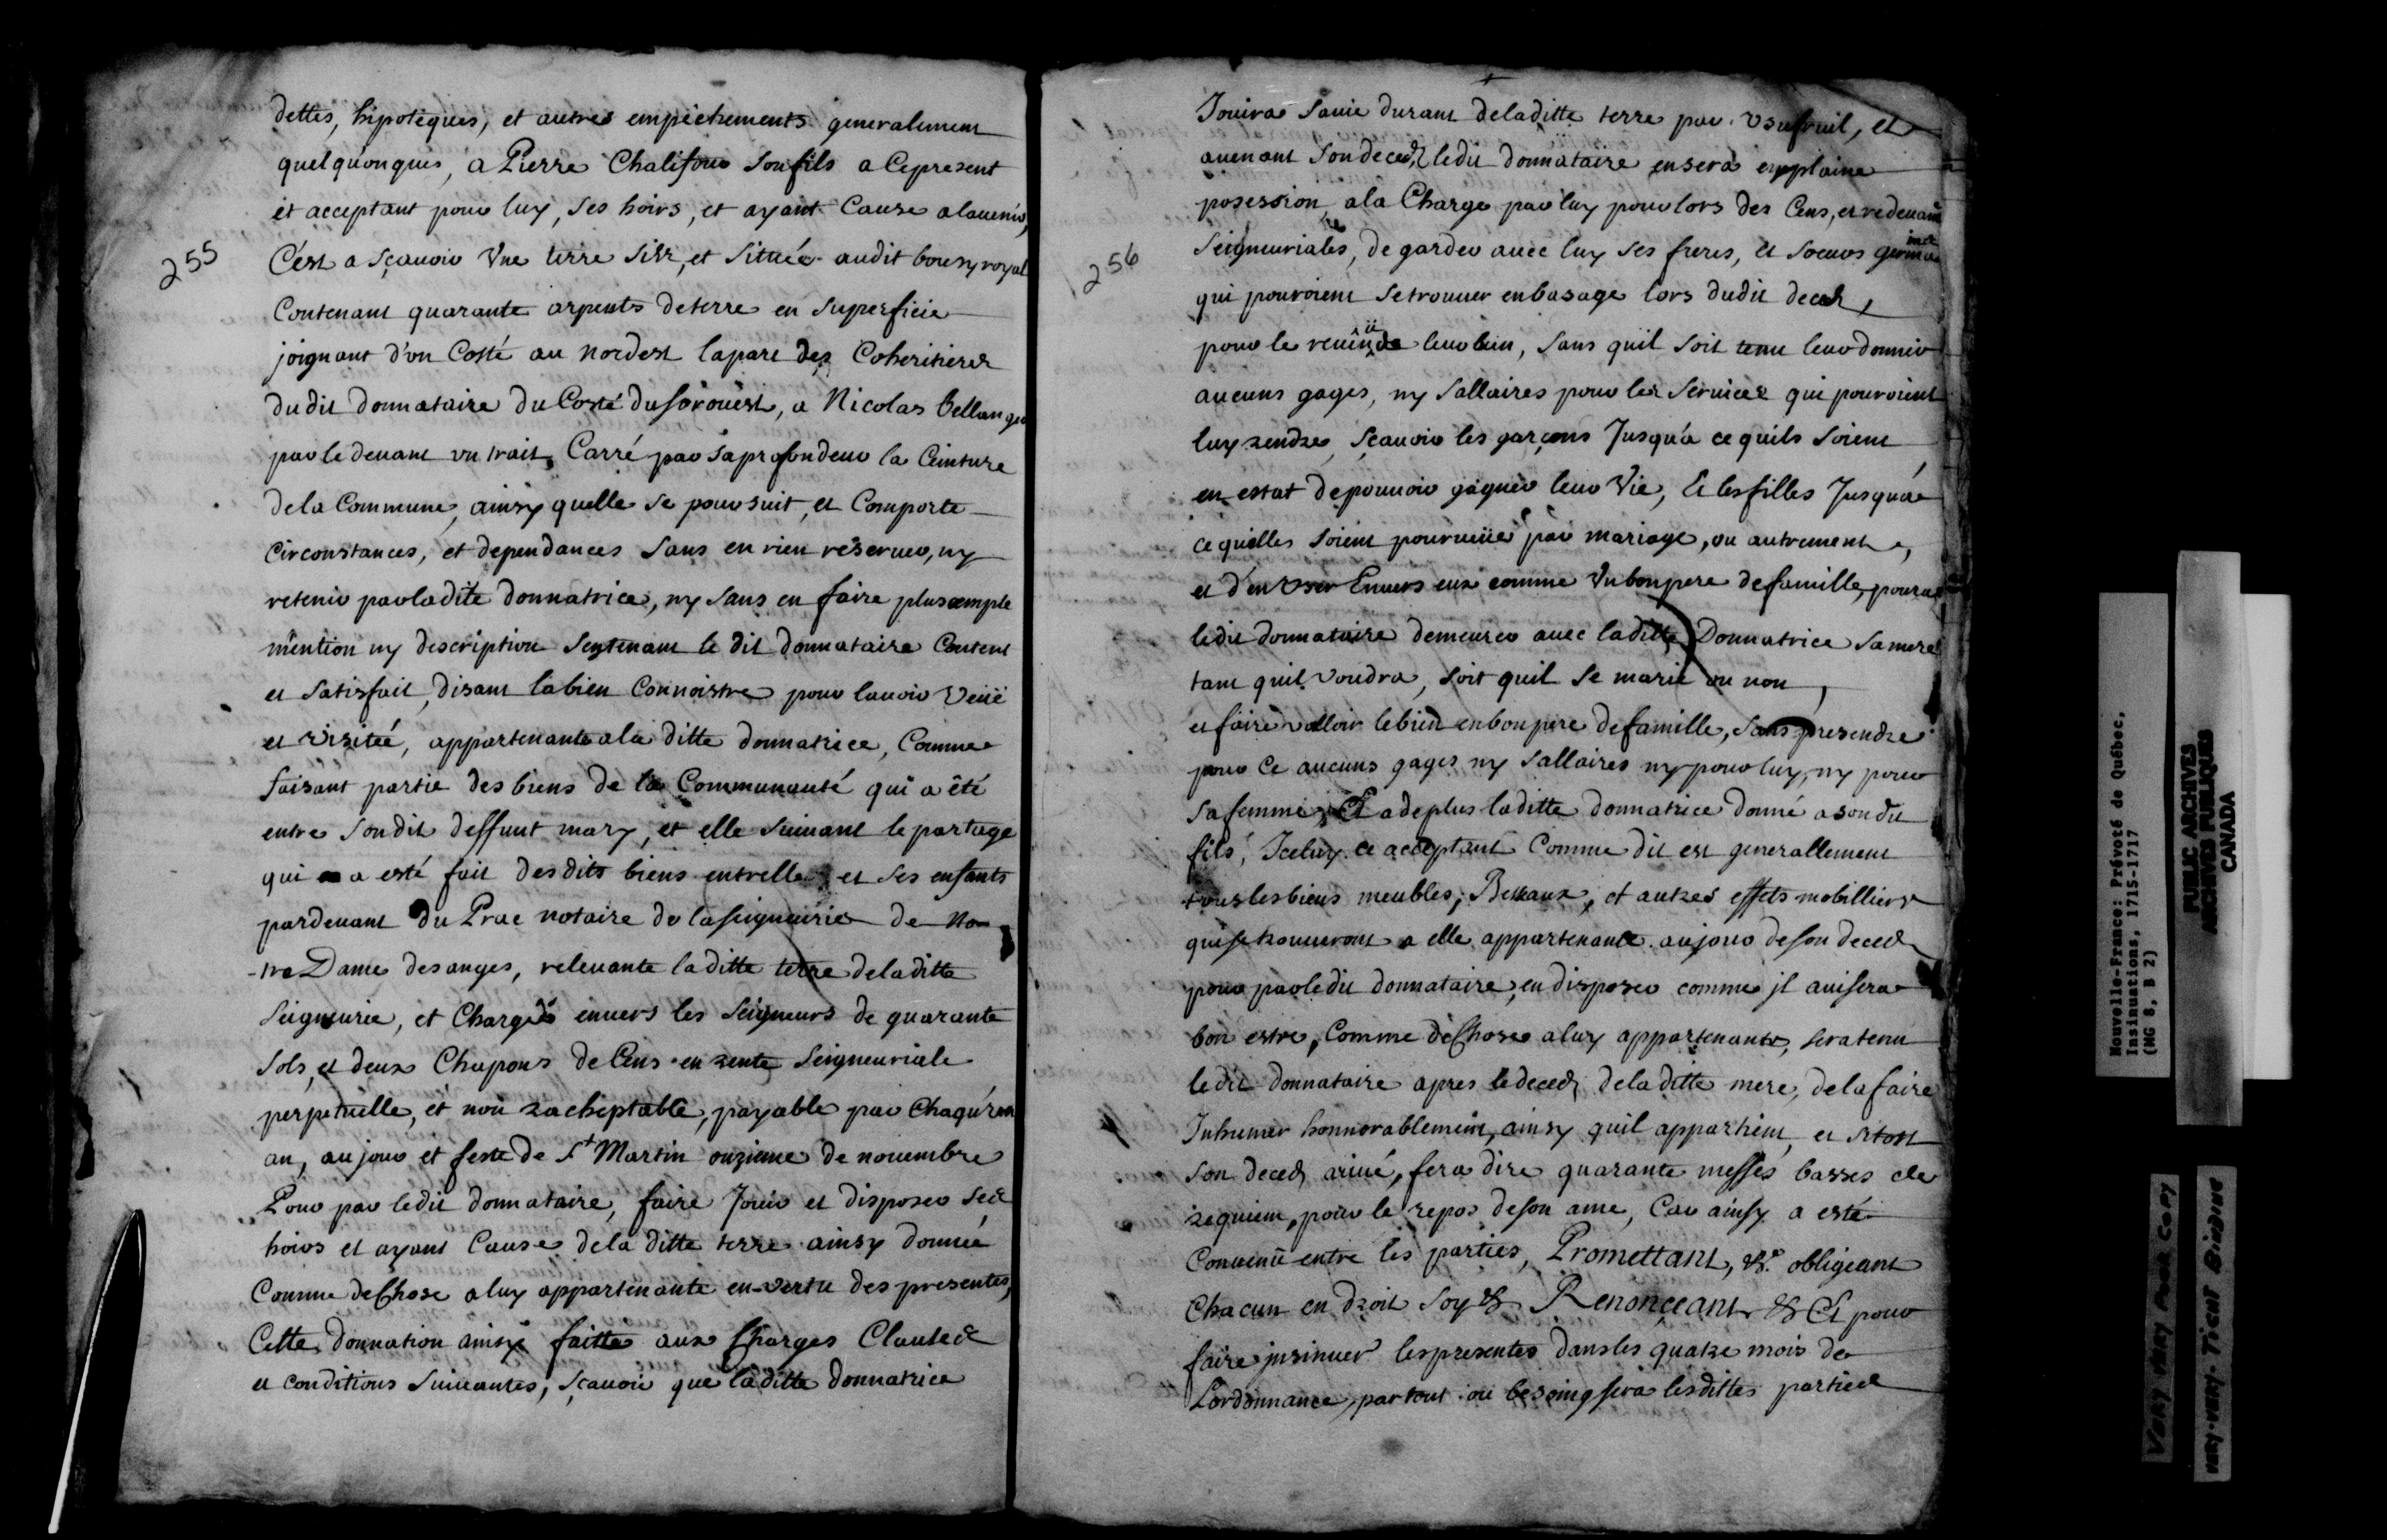 dettes, hipoteques, et autres empêchements generalement
quelquonques, a Pierre Chalifour son fils a Ce present
et acceptant pour luy, ses hoirs, et ayant Cause alauenir,
255
C'est a Sçauoir Vne terre sise, et Situeé audit bourg royal
Contenant quarante arpents de terre en Superficie
joignant d'vn Costé au nordest la part des Coheritiers
du dit donnataire du Costé du sorouest, a Nicolas bellanger
par le deuant vn trait Carré par sa profondeur la Ceinture
de la Commune, ainsy quelle se poursuit, et Comporte
Circonstances, et dependances sans en rien reseruer, ny
retenir par ladite donnatrice, ny sans en faire plus ample
mention ny description se tenant le dit donnataire Content
et Satisfait, disant la bien Connoistre pour lauoir Veüe
et Visitée, appartenante a la ditte donnatrice, Comme
faisant partie des biens de la Communauté qui a été
entre son dit deffunt mary, et elle suiuant le partage
qui a esté fait des dits biens entrelle et ses enfants
pardeuant Du Prac notaire de la seigneurie de No
-tre Dame des anges, releuante la ditte terre de la ditte
Seigneurie, et Chargée enuers les Seigneurs de quarante
sols, et deux Chapons de Cens en rente Seigneuriale
perpetuelle, et non racheptable, payable par Chaqu'vn
an, au jour et feste de St Martin onzieme de nouembre
Pour par ledit donnataire, faire Jouir et disposer ses
hoirs et ayant Cause de la ditte terre ainsy donnée
Comme de Chose a luy appartenante en vertu des presentes,
Cette donnation ainsy faitte aux Charges Clauses
et conditions suiuantes, sçauoir que laditte donnatrice
Jouira sa vie durant de laditte terre par vsufruit, et
auenant son deceds ledit donnataire en sera en plaine
posession, a la Charge par luy pour lors des Cens, et redeuances
256
Seigneuriales, de garder auec luy ses freres, et soeurs germains
qui pouroient se trouuer en bas age lors dudit deceds,
pour le reuenu de leur bien, sans quil soit tenu leur donner
aucuns gages, ny sallaires pour les seruices qui pouroient
luy rendre, sçauoir les garçons Jusqu'a ce quils soient
en estat de pouuoir gagner leur Vie, Et les filles Jusqua
ce quelles soient pourueües par mariage, ou autrement,
et d'en vser Enuers eux comme Vn bon pere de famille, poura
ledit donnataire demeurer auec laditte Donnatrice sa mere
tant quil voudra, soit quil se marie ou non,
et faire valloir le bien en bon pere de famille, sans pretendre
pour Ce aucuns gages ny sallaires ny pour luy, ny pour
sa femme, Et a de plus laditte donnatrice donné a son dit
fils, Iceluy ce acceptant Comme dit est generallement
tous les biens meubles, Bestiaux, et autres effets mobilliers
qui se trouueront a elle appartenants au jour de son deceds
pour par ledit donnataire, en disposer comme jl auisera
bon estre, Comme de Chose a luy appartenante, sera tenu
ledit donnataire apres le deceds de la ditte mere, de la faire
Inhumer honnorablement, ainsy quil appartient, et sitost
son deceds ariué, fera dire quarante messes basses de
requiem, pour le repos de son ame, Car ainsy a esté
Conuenu entre les parties, Promettant, &a. obligeant
Chacun en droit soy &a Renonçeant &a Et pour
faire jnsinuer les presentes dans les quatre mois de
Lordonnance, par tout ou besoing sera lesdittes parties
Nouvelle-France: Prévoté de Québec,
Insinuations, 1715-1717
(MG 8, B 2)
PUBLIC ARCHIVES
ARCHIVES PUBLIQUES
CANADA
VERY VERY POOR COPY
VERY-VERY-TIGHT BINDING